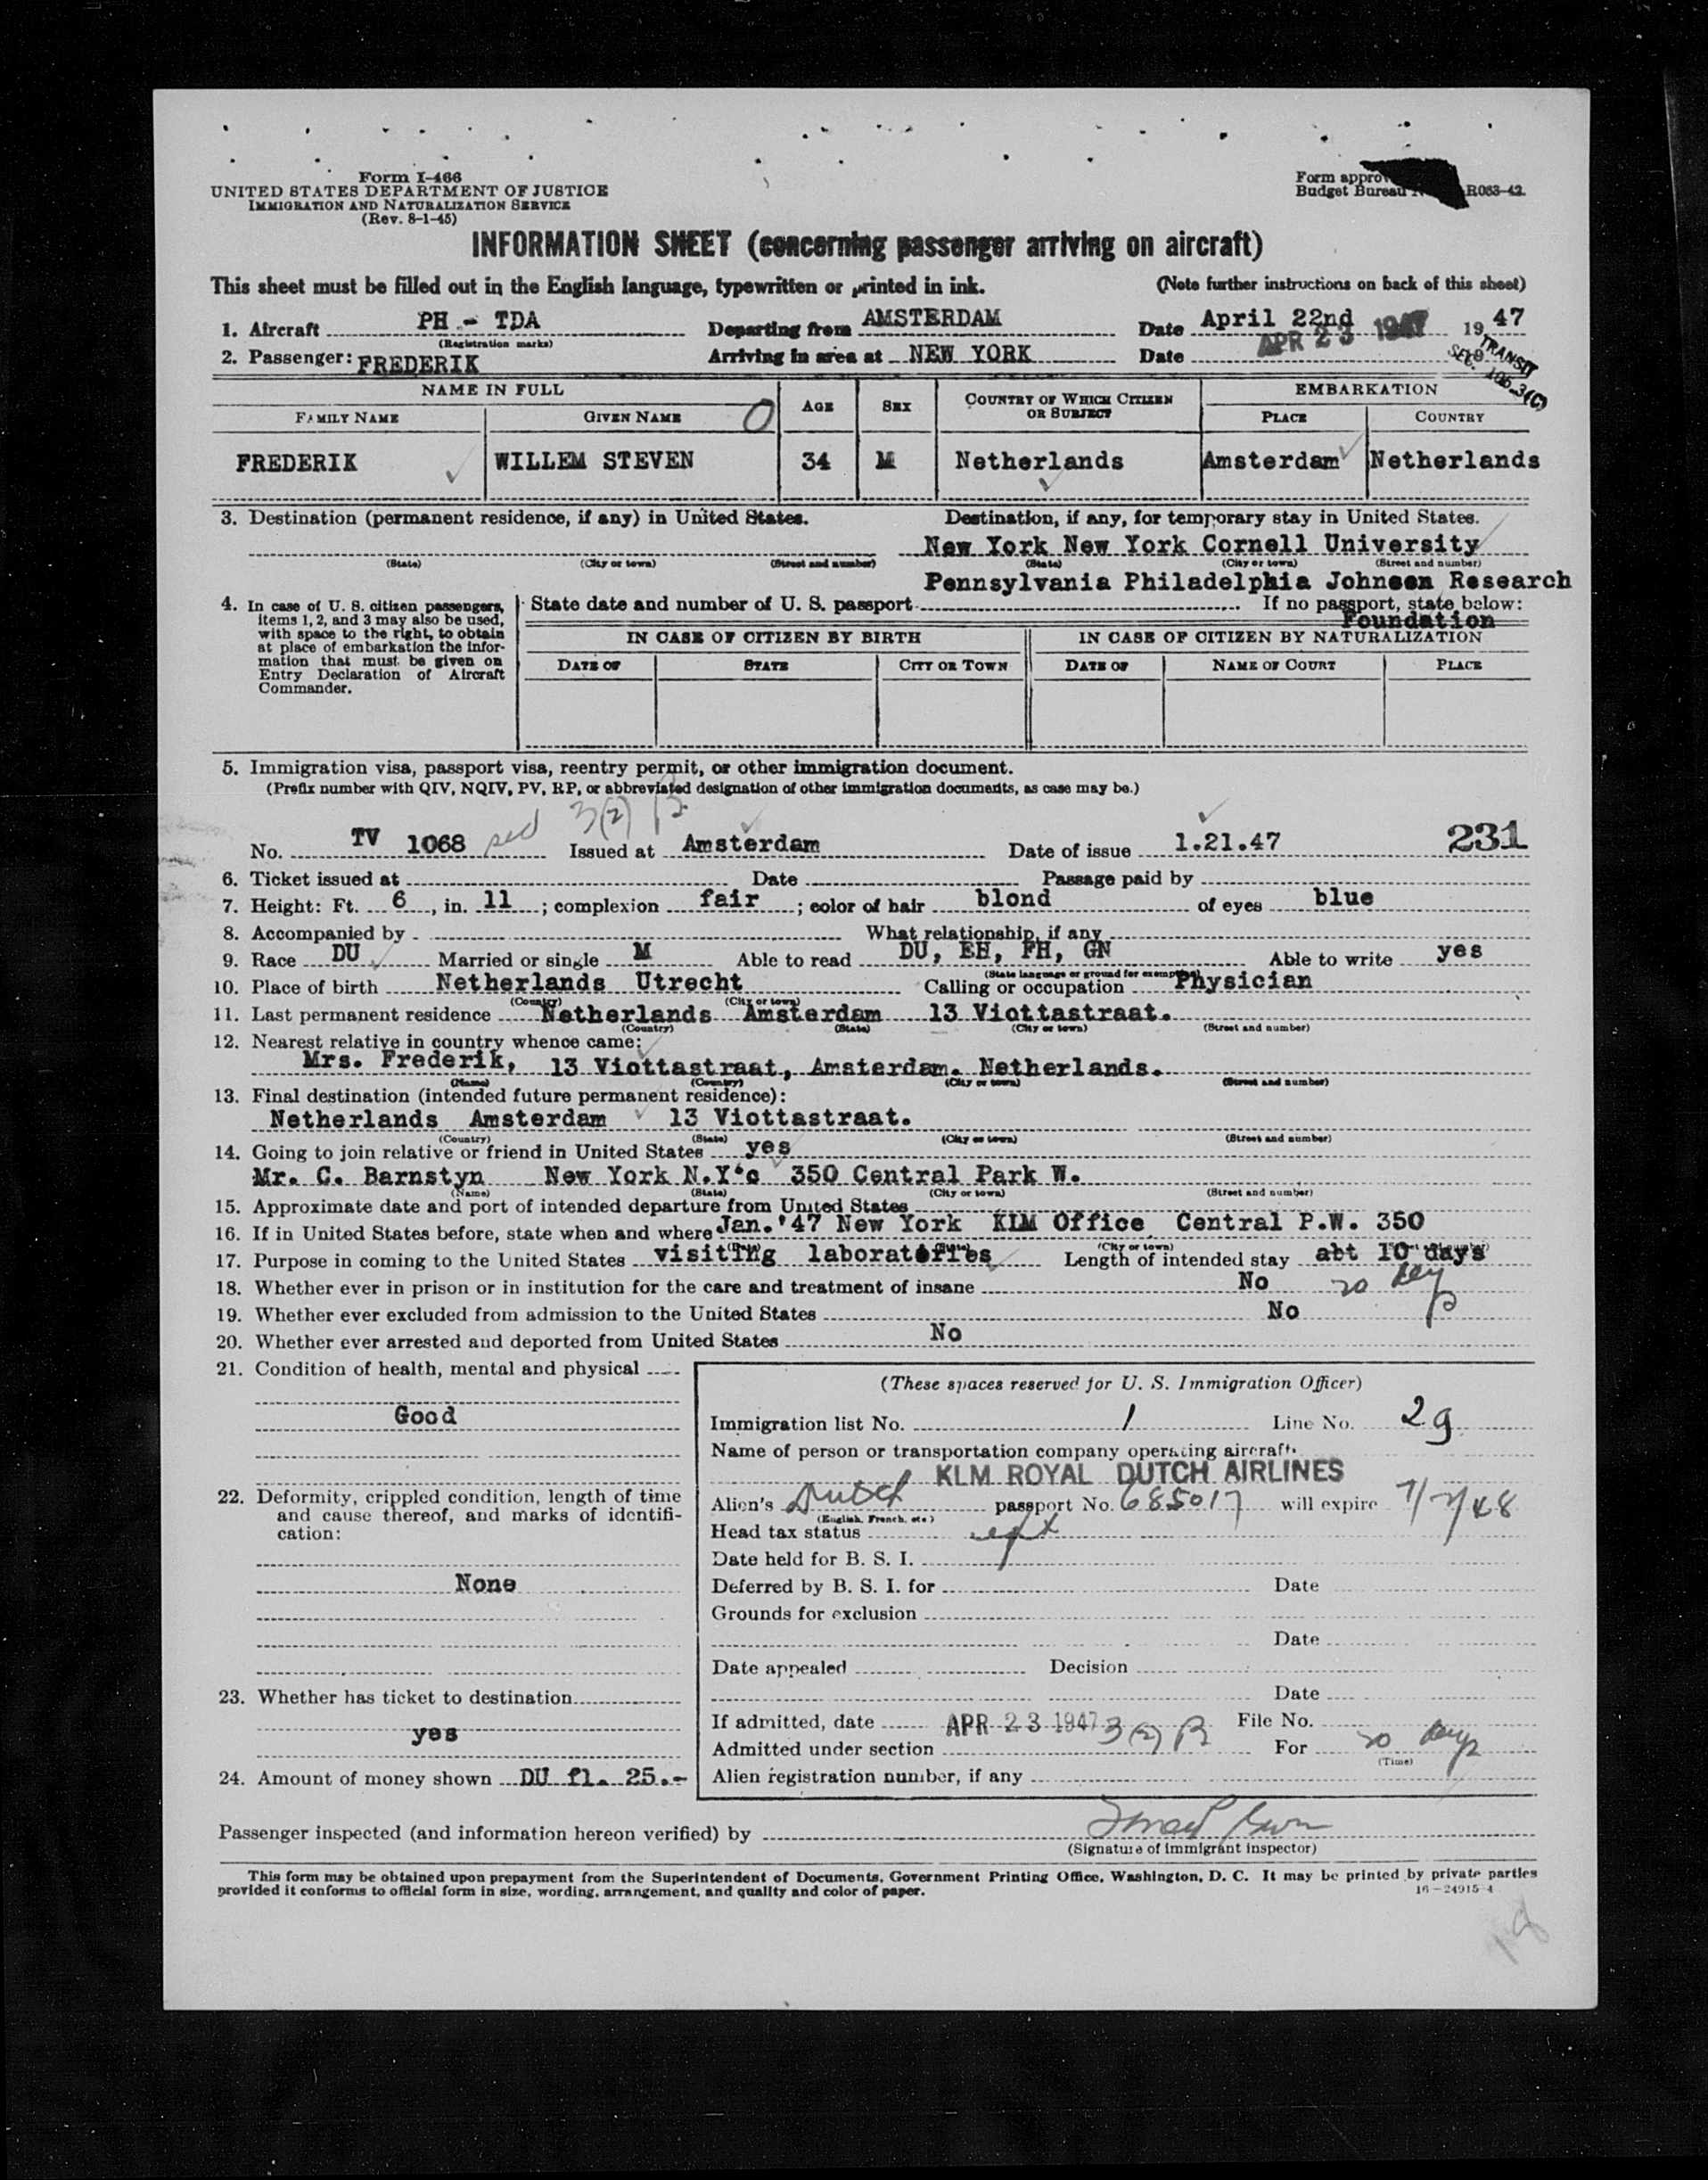 Form I-466
UNITED STATES DEPARTMENT OF JUSTICE
IMMIGRATION AND NATURALIZATION SERVICE
(Rev. 8-1-45)
Form approv
Budget Bureau R063-42.
INFORMATION SHEET (concerning passenger arriving on aircraft)
This sheet must be filled out in the English language, typewritten or printed in ink. (Note further instructions on back of this sheet)
1. Aircraft PH - TDA Departing from AMSTERDAM Date April 22nd 19 47
(Registration marks)
2. Passenger: FREDERIK Arriving in area at NEW YORK Date APR 23 1947
TRANSIT
SEC. 106-3(C)
NAME IN FULL AGE SEX COUNTRY OF WHICH CITIZEN OR SUBJECT EMBARKATION
FAMILY NAME GIVEN NAME PLACE COUNTRY
FREDERIK WILLEM STEVEN 34 M Netherlands Amsterdam Netherlands
3. Destination (permanent residence, if any) in United States. Destination, if any, for temporary stay in United States.
New York New York Cornell University
(State) (City or town) (Street and number) (State) (City or town) (Street and number)
Pennsylvania Philadelphia Johnson Research
Foundation
4. In case of U. S. citizen passengers,
items 1, 2, and 3 may also be used,
with space to the right, to obtain
at place of embarkation the infor-
mation that must be given on
Entry Declaration of Aircraft
Commander.
State date and number of U. S. passport If no passport, state below:
IN CASE OF CITIZEN BY BIRTH IN CASE OF CITIZEN BY NATURALIZATION
DATE OF STATE CITY OR TOWN DATE OF NAME OF COURT PLACE
5. Immigration visa, passport visa, reentry permit, or other immigration document.
(Prefix number with QIV, NQIV, PV, RP, or abbreviated designation of other immigration documents, as case may be.)
3(2)
No. TV 1068 Issued at Amsterdam Date of issue 1.21.47 231
6. Ticket issued at Date Passage paid by
7. Height: Ft. 6, in. 11; complexion fair; color of hair blond of eyes blue
8. Accompanied by What relationship, if any
9. Race DU Married or single M Able to read DU, EH, FH, GN Able to write yes
(State language or ground for exemption)
10. Place of birth Netherlands Utrecht Calling or occupation Physician
(Country) (City or town)
11. Last permanent residence Netherlands Amsterdam 13 Viottastraat.
(Country) (State) (City or town) (Street and number)
12. Nearest relative in country whence came:
Mrs. Frederik, 13 Viottastraat, Amsterdam. Netherlands.
(Name) (Country) (City or town) (Street and number)
13. Final destination (intended future permanent residence):
Netherlands Amsterdam 13 Viottastraat.
(Country) (State) (City or town) (Street and number)
14. Going to join relative or friend in United States yes
Mr. C. Barnstyn New York N.Y‘c 350 Central Park W.
(Name) (State) (City or town) (Street and number)
15. Approximate date and port of intended departure from United States
16. If in United States before, state when and where Jan.'47 New York KLM Office Central P.W. 350
(City or town)
17. Purpose in coming to the United States visiting laboratories Length of intended stay abt 10 days
18. Whether ever in prison or in institution for the care and treatment of insane No 20 days
19. Whether ever excluded from admission to the United States No
20. Whether ever arrested and deported from United States No
21. Condition of health, mental and physical
Good
22. Deformity, crippled condition, length of time
and cause thereof, and marks of identifi-
cation:
None
23. Whether has ticket to destination
yes
24. Amount of money shown DU fl. 25.-
(These spaces reserved for U. S. Immigration Officer)
Immigration list No. 1 Line No. 29
Name of person or transportation company operating aircraft.
KLM ROYAL DUTCH AIRLINES
Alien's Dutch passport No. 685017 will expire 7/7/48
(English, French, etc.)
Head tax status
Date held for B. S. I.
Deferred by B. S. I. for Date
Grounds for exclusion
Date
Date appealed Decision
Date
If admitted, date APR 23 1947 File No.
Admitted under section 3(2) B For 20 days
(Time)
Alien registration number, if any
Passenger inspected (and information hereon verified) by
(Signature of immigrant inspector)
This form may be obtained upon prepayment from the Superintendent of Documents, Government Printing Office, Washington, D. C. It may be printed by private parties
provided it conforms to official form in size, wording, arrangement, and quality and color of paper.
16-24915-4